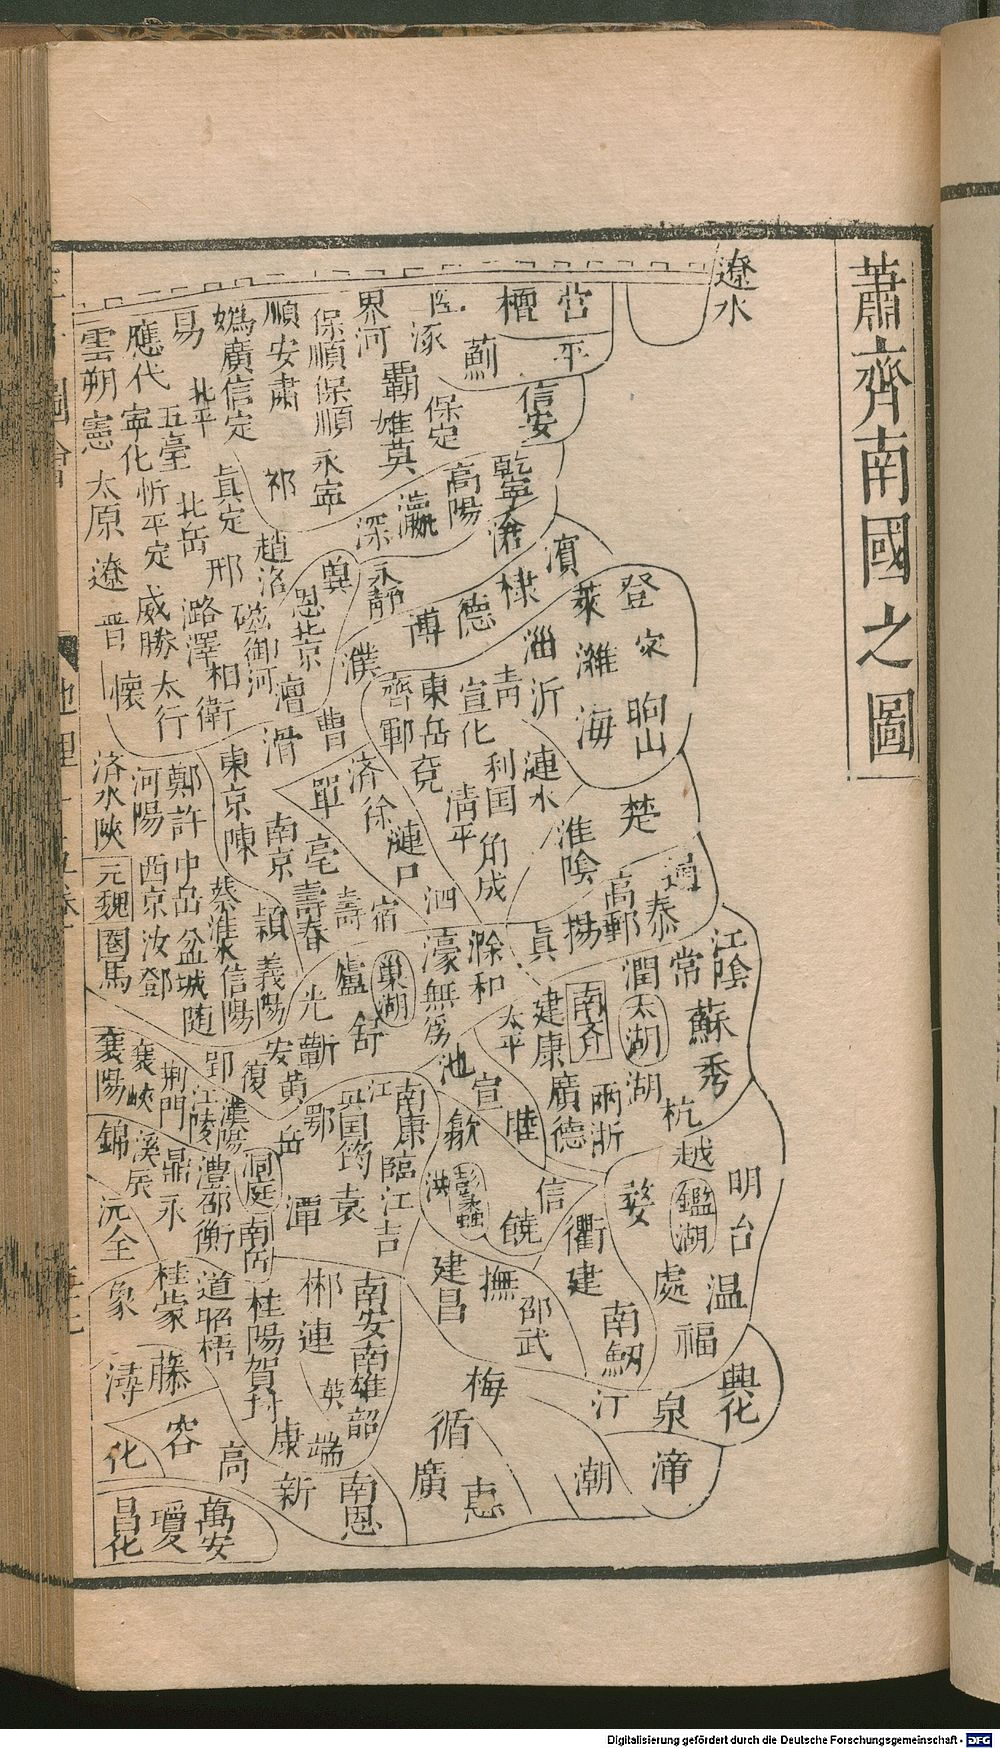 蕭齊南國之圖
遼水
營
平
檀
薊
信安
涿
界河
霸
雄
莫
保定
保順
保順
永寧
順安肅
媯
廣信
定
易
北平
應代
寧化
五臺
忻
平定
雲
朔
憲
太原
遼
晉
祁
真定
北岳
邢
趙
洛
乾寧
高陽
瀛
深
滄
永靜
冀
恩
北京
磁
御河
潞
澤
相
衛
威勝
太行
懷
濱
棣
德
博
濮
登
萊
濰
海
朐山
淄
沂
青
宣化
東岳
齊
鄆
兗
曹
滑
濟
徐
單
清平
利國
漣水
角成
漣口
淮陰
楚
泗
宿
東京
陳
南京
亳
壽春
壽
潁
鄭
許
河陽
濟水
陝
元魏
西京
中岳
蔡
淮水
汝
鄧
盆城
隨
信陽
義陽
光
廬
巢湖
舒
濠
無為
滁
和
真
揚
高郵
通
泰
江陰
常
潤
太湖
蘇
秀
湖
杭
南齊
建康
太平
廣德
兩浙
池
宣
歙
睦
越
鑑湖
明
台
婺
溫
處
衢
信
饒
彭蠡
洪
南康
江
興國
筠
臨江
吉
袁
鄂
岳
潭
蘄
黃
安
復
郢
漢陽
江陵
荊門
襄陽
峽
錦
溪
辰
鼎
澧
邵
衡
永
沅
全
洞庭
南岳
建昌
撫
邵武
建
南劍
福
興化
泉
汀
漳
潮
梅
循
惠
廣
郴
連
南安
南雄
韶
英
桂陽
賀
封
康
端
道
昭
梧
桂
蒙
象
潯
藤
容
化
高
新
南恩
萬安
瓊
昌化
Digitalisierung gefördert durch die Deutsche Forschungsgemeinschaft - DFG